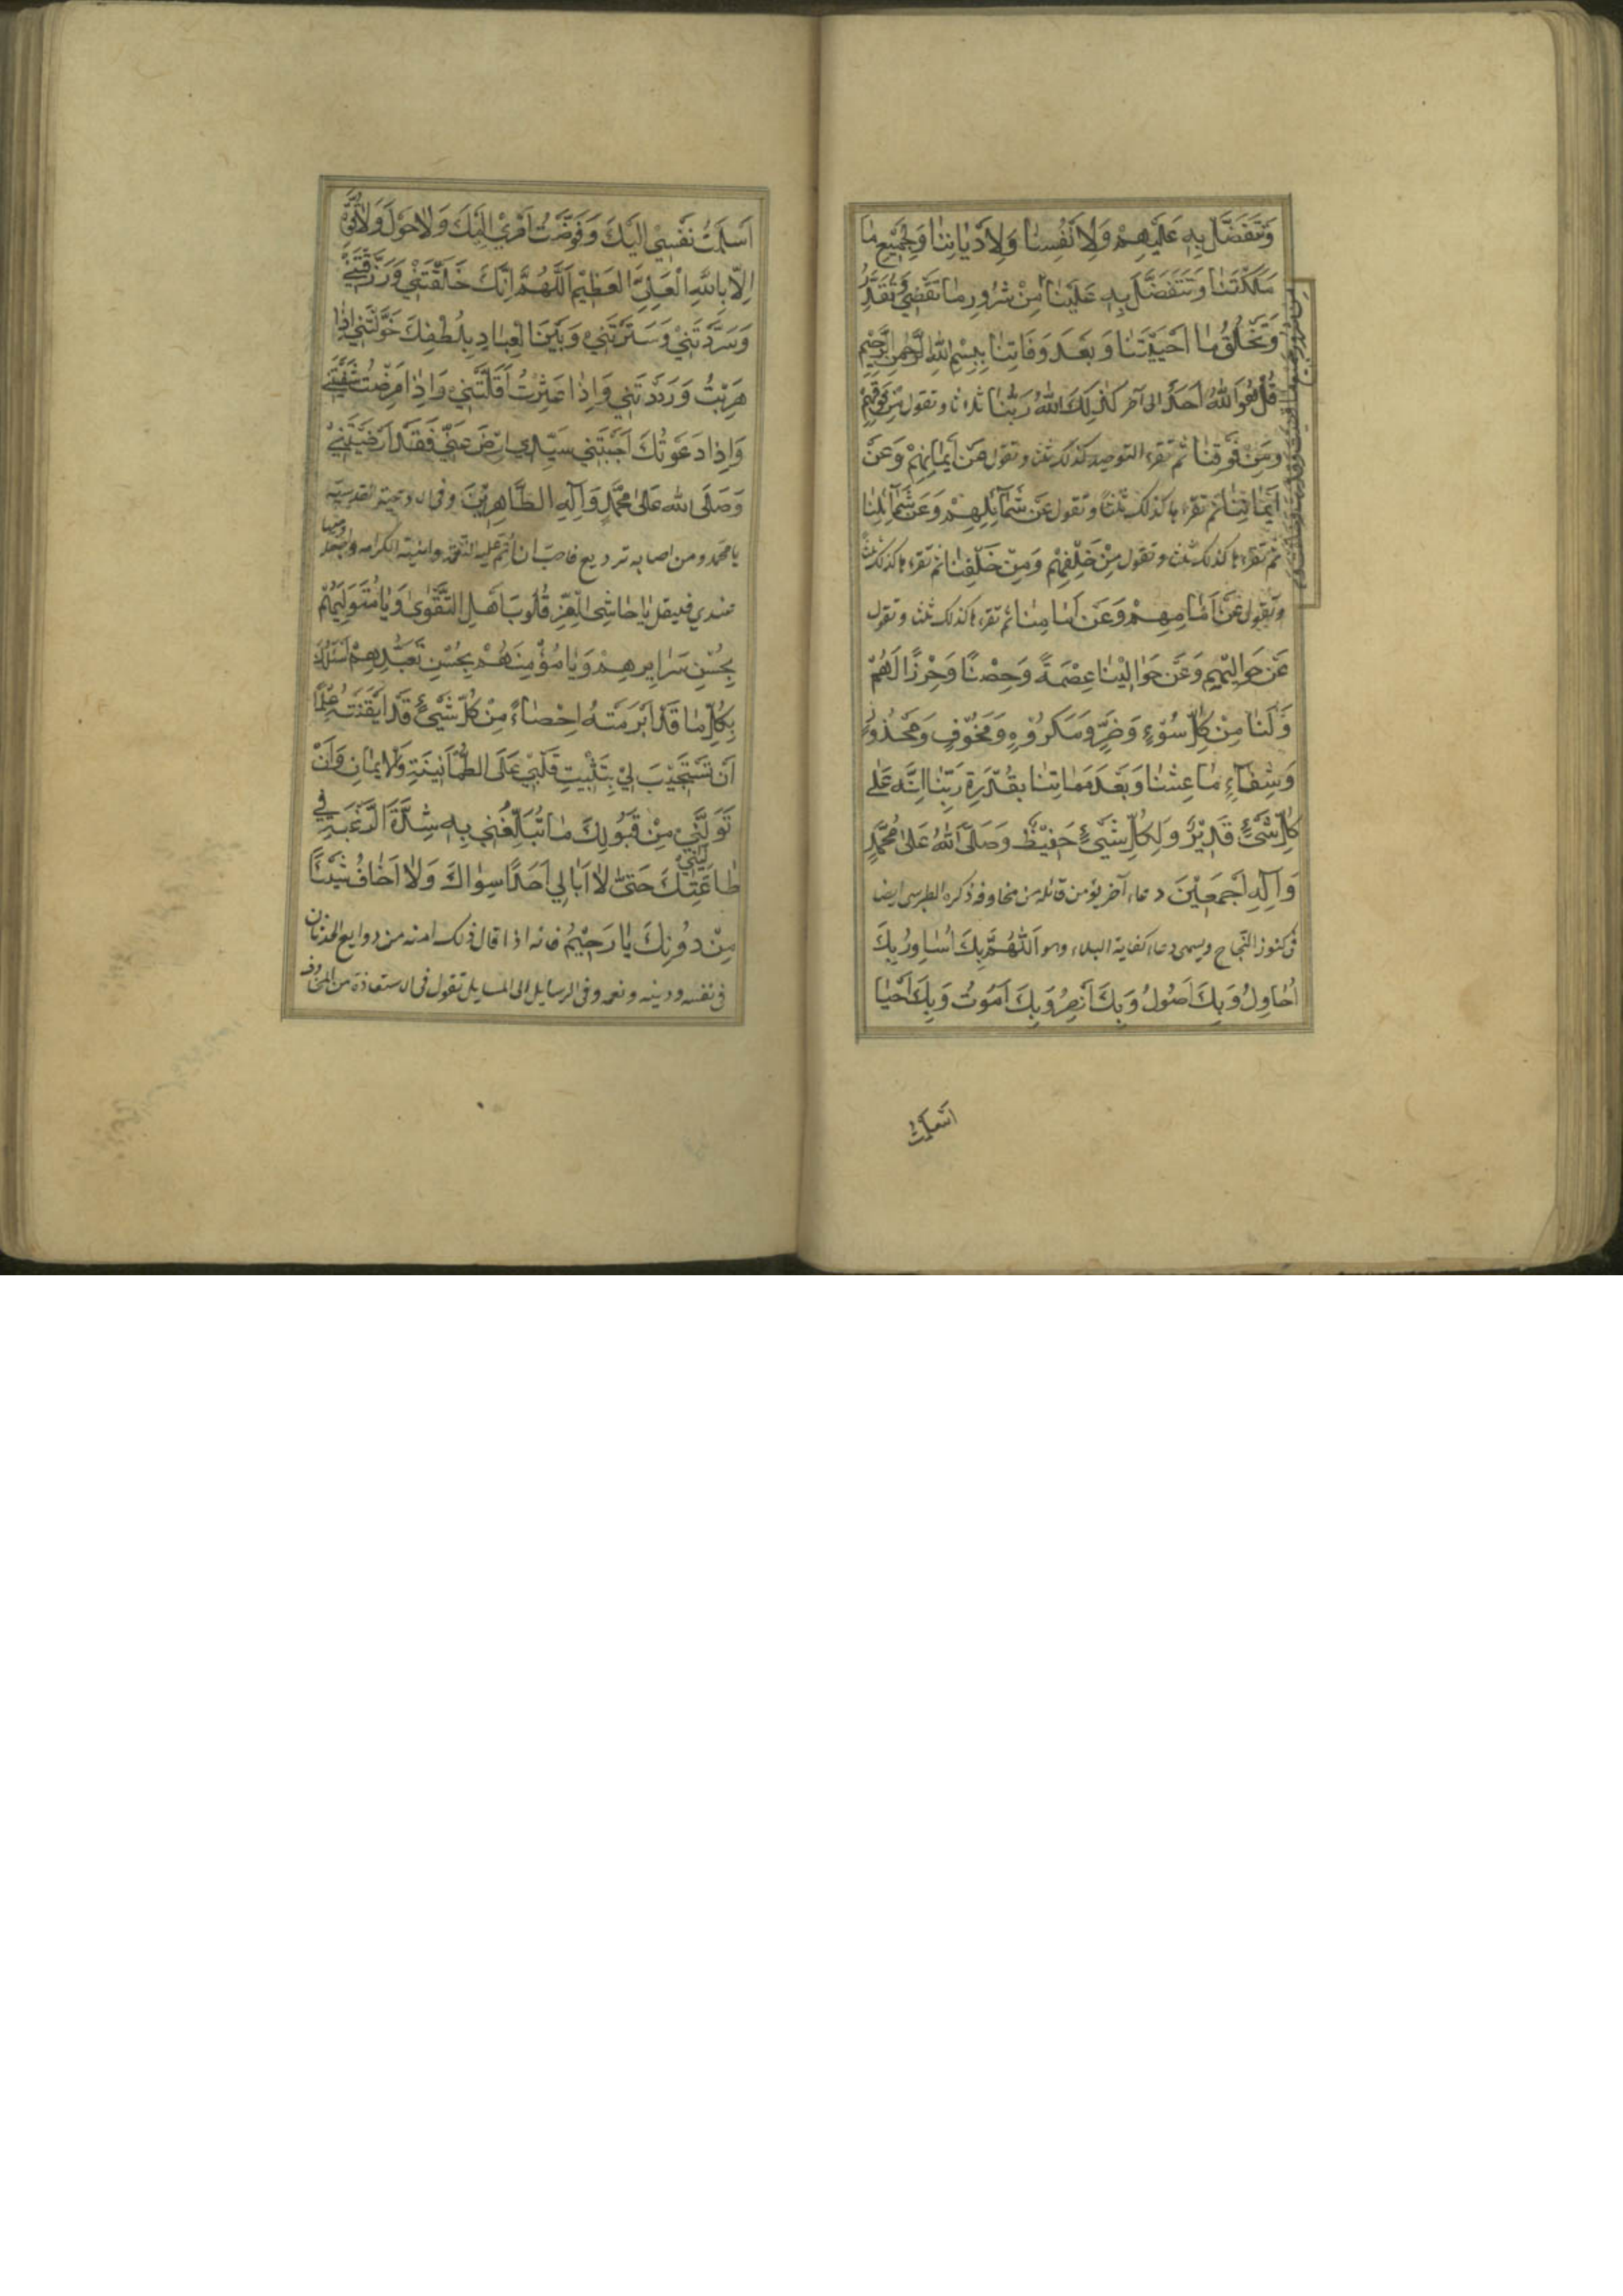 وَتَتَفَضَّلُ بِهِ عَلَيْهِمْ وَلِأَنْفُسِنَا وَلِأَدْيَانِنَا وَلِجَمِيعِ مَا
مَلَكْتَنَا وَتَتَفَضَّلُ بِهِ عَلَيْنَا مِنْ شُرُورِ مَا تَقْضِي وَتُقَدِّرُ
وَتَخْلُقُ مَا اَحْيَيْتَنَا وَبَعْدَ وَفَاتِنَا بِبِسْمِ اللهِ الرَّحْمٰنِ الرَّحِيْمِ
قُلْ هُوَ اللهُ اَحَدٌ الى آخر كَذٰلِكَ اللهُ رَبُّنَا ثلاثا و تقول مِنْ فَوْقِهِمْ
وَمِنْ فَوْقِنَا ثم تقرء التوحيد كذلك ثلث و تقول عَنْ اَيْمَانِهِمْ وَعَنْ
اَيْمَانِنَا ثم تقرء ها كذلك ثلثا و تقول عَنْ شَمَائِلِهِمْ وَعَنْ شَمَائِلِنَا
ثم تقرء ها كذلك ثلث و تقول مِنْ خَلْفِهِمْ وَمِنْ خَلْفِنَا ثم تقرء ها كذلك ثلث
و تقول عَنْ اَمَامِهِمْ وَعَنْ اَمَامِنَا ثم تقرء ها كذلك ثلث و تقول
عَنْ حَوَالَيْهِمْ وَعَنْ حَوَالَيْنَا عِصْمَةً وَحِصْنًا وَحِرْزًا لَهُمْ
وَلَنَا مِنْ كُلِّ سُوْءٍ وَضُرٍّ وَمَكْرُوْهٍ وَمَخُوْفٍ وَمَحْذُورٍ
وَشِفَاءٍ مَا عِشْنَا وَبَعْدَ مَمَاتِنَا بِقُدْرَةِ رَبِّنَا اِنَّهُ عَلٰى
كُلِّ شَيْءٍ قَدِيْرٌ وَلِكُلِّ شَيْءٍ حَفِيْظٌ وَصَلَّى اللهُ عَلٰى مُحَمَّدٍ
وَآلِهِ اَجْمَعِيْنَ دعاء آخر يؤمن قائله من مخاوفه ذكره الطبرسى ايضا
فى كنوز النجاح ويسمى دعاء كفاية البلاء وهو اَللّٰهُمَّ بِكَ اُسَاوِرُ وَبِكَ
اُحَاوِلُ وَبِكَ اَصُوْلُ وَبِكَ اَنْتَصِرُ وَبِكَ اَمُوْتُ وَبِكَ اَحْيَا
اسلمت
اَسْلَمْتُ نَفْسِيْ اِلَيْكَ وَفَوَّضْتُ اَمْرِيْ اِلَيْكَ وَلَا حَوْلَ وَلَا قُوَّةَ
اِلَّا بِاللهِ الْعَلِيِّ الْعَظِيْمِ اَللّٰهُمَّ اِنَّكَ خَلَقْتَنِيْ وَرَزَقْتَنِيْ
وَسَرَرْتَنِيْ وَسَتَرْتَنِيْ وَبَيْنَ الْعِبَادِ بِلُطْفِكَ خَوَّلْتَنِي اِذَا
هَرَبْتُ وَرَدَدْتَنِي وَاِذَا عَثَرْتُ اَقَلْتَنِيْ وَاِذَا مَرِضْتُ شَفَيْتَنِيْ
وَاِذَا دَعَوْتُكَ اَجَبْتَنِي سَيِّدِي اِرْضَ عَنِّي فَقَدْ اَرْضَيْتَنِيْ
وَصَلَّى اللهُ عَلٰى مُحَمَّدٍ وَآلِهِ الطَّاهِرِيْنَ وفى الادعية القدسية
يا محمد ومن اصابه ترويع فاحب ان اتم عليه النعمة واهنيه الكرامة واجعله وجيها
عندي فليقل يَا حَاشِيَ الْعِزِّ قُلُوبَ اَهْلِ التَّقْوٰى وَيَا مُتَوَلِّيَهُمْ
بِحُسْنِ سَرَايِرِهِمْ وَيَا مُؤْمِنَهُمْ بِحُسْنِ تَعَبُّدِهِمْ اَسْئَلُكَ
بِكُلِّ مَا قَدْ اَبْرَمْتَهُ اِحْصَاءً مِنْ كُلِّ شَيْءٍ قَدْ اَيْقَنْتَهُ عِلْمًا
اَنْ تَسْتَجِيْبَ لِيْ بِتَثْبِيتِ قَلْبِيْ عَلَى الطُّمَأْنِيْنَةِ وَالْاِيمَانِ وَاَنْ
تُوَلِّيَنِيْ مِنْ قَبُوْلِكَ مَا تُبَلِّغُنِيْ بِهِ شِدَّةَ الرَّغْبَةِ فِي
طَاعَتِكَ حَتّٰى لَا اُبَالِي اَحَدًا سِوَاكَ وَلَا اَخَافُ شَيْئًا
مِنْ دُوْنِكَ يَا رَحِيْمُ فانه اذا قال ذلك امنته من روايع الحدثان
فى نفسه ودينه ونعمه وفى الرسايل الى المسايل تقول فى الاستعاذة من المخاوف